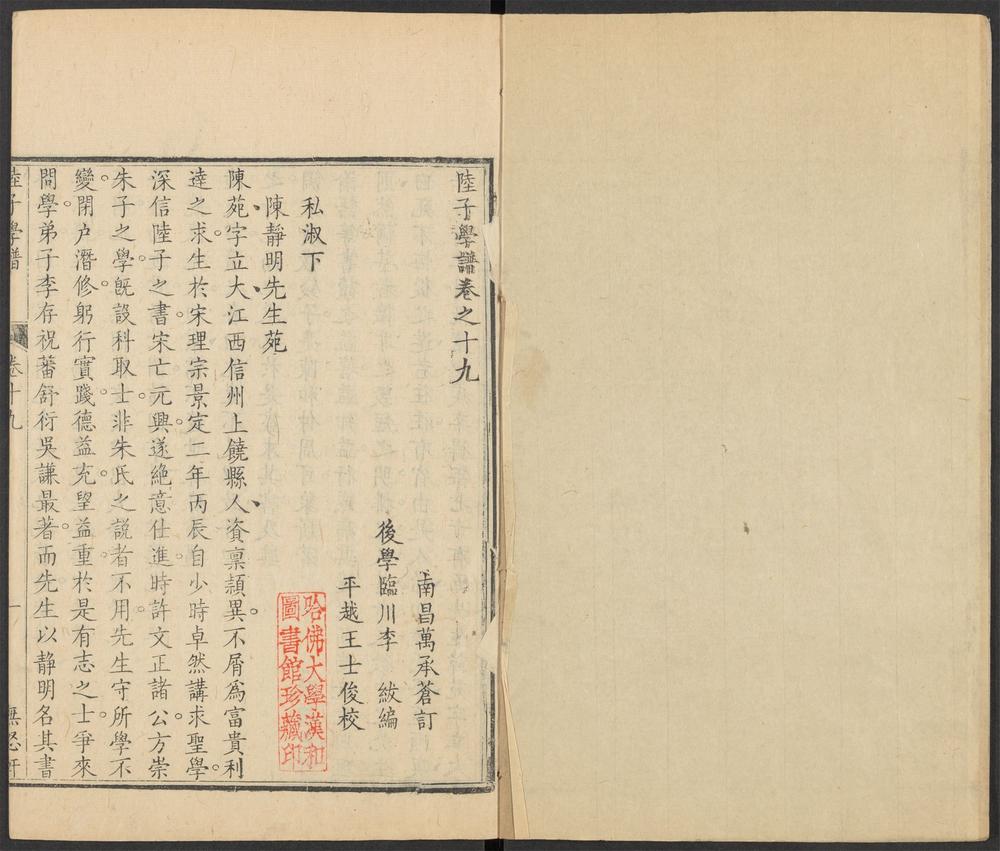 陸子學譜卷之十九
南昌萬承蒼訂
後學臨川李　紱編
平越王士俊校
私淑下
陳靜明先生苑
陳苑字立大江西信州上饒縣人資稟頴異不屑爲富貴利
達之求生於宋理宗景定二年丙辰自少時卓然講求聖學
深信陸子之書宋亡元興遂絶意仕進時許文正諸公方崇
朱子之學旣設科取士非朱氏之説者不用先生守所學不
變閉户潛修躬行實踐德益充望益重於是有志之士爭來
問學弟子李存祝蕃舒衍吳謙最著而先生以靜明名其書
陸子學譜
卷十九
一
無怒軒
哈佛大學漢和
圖書館珍藏印